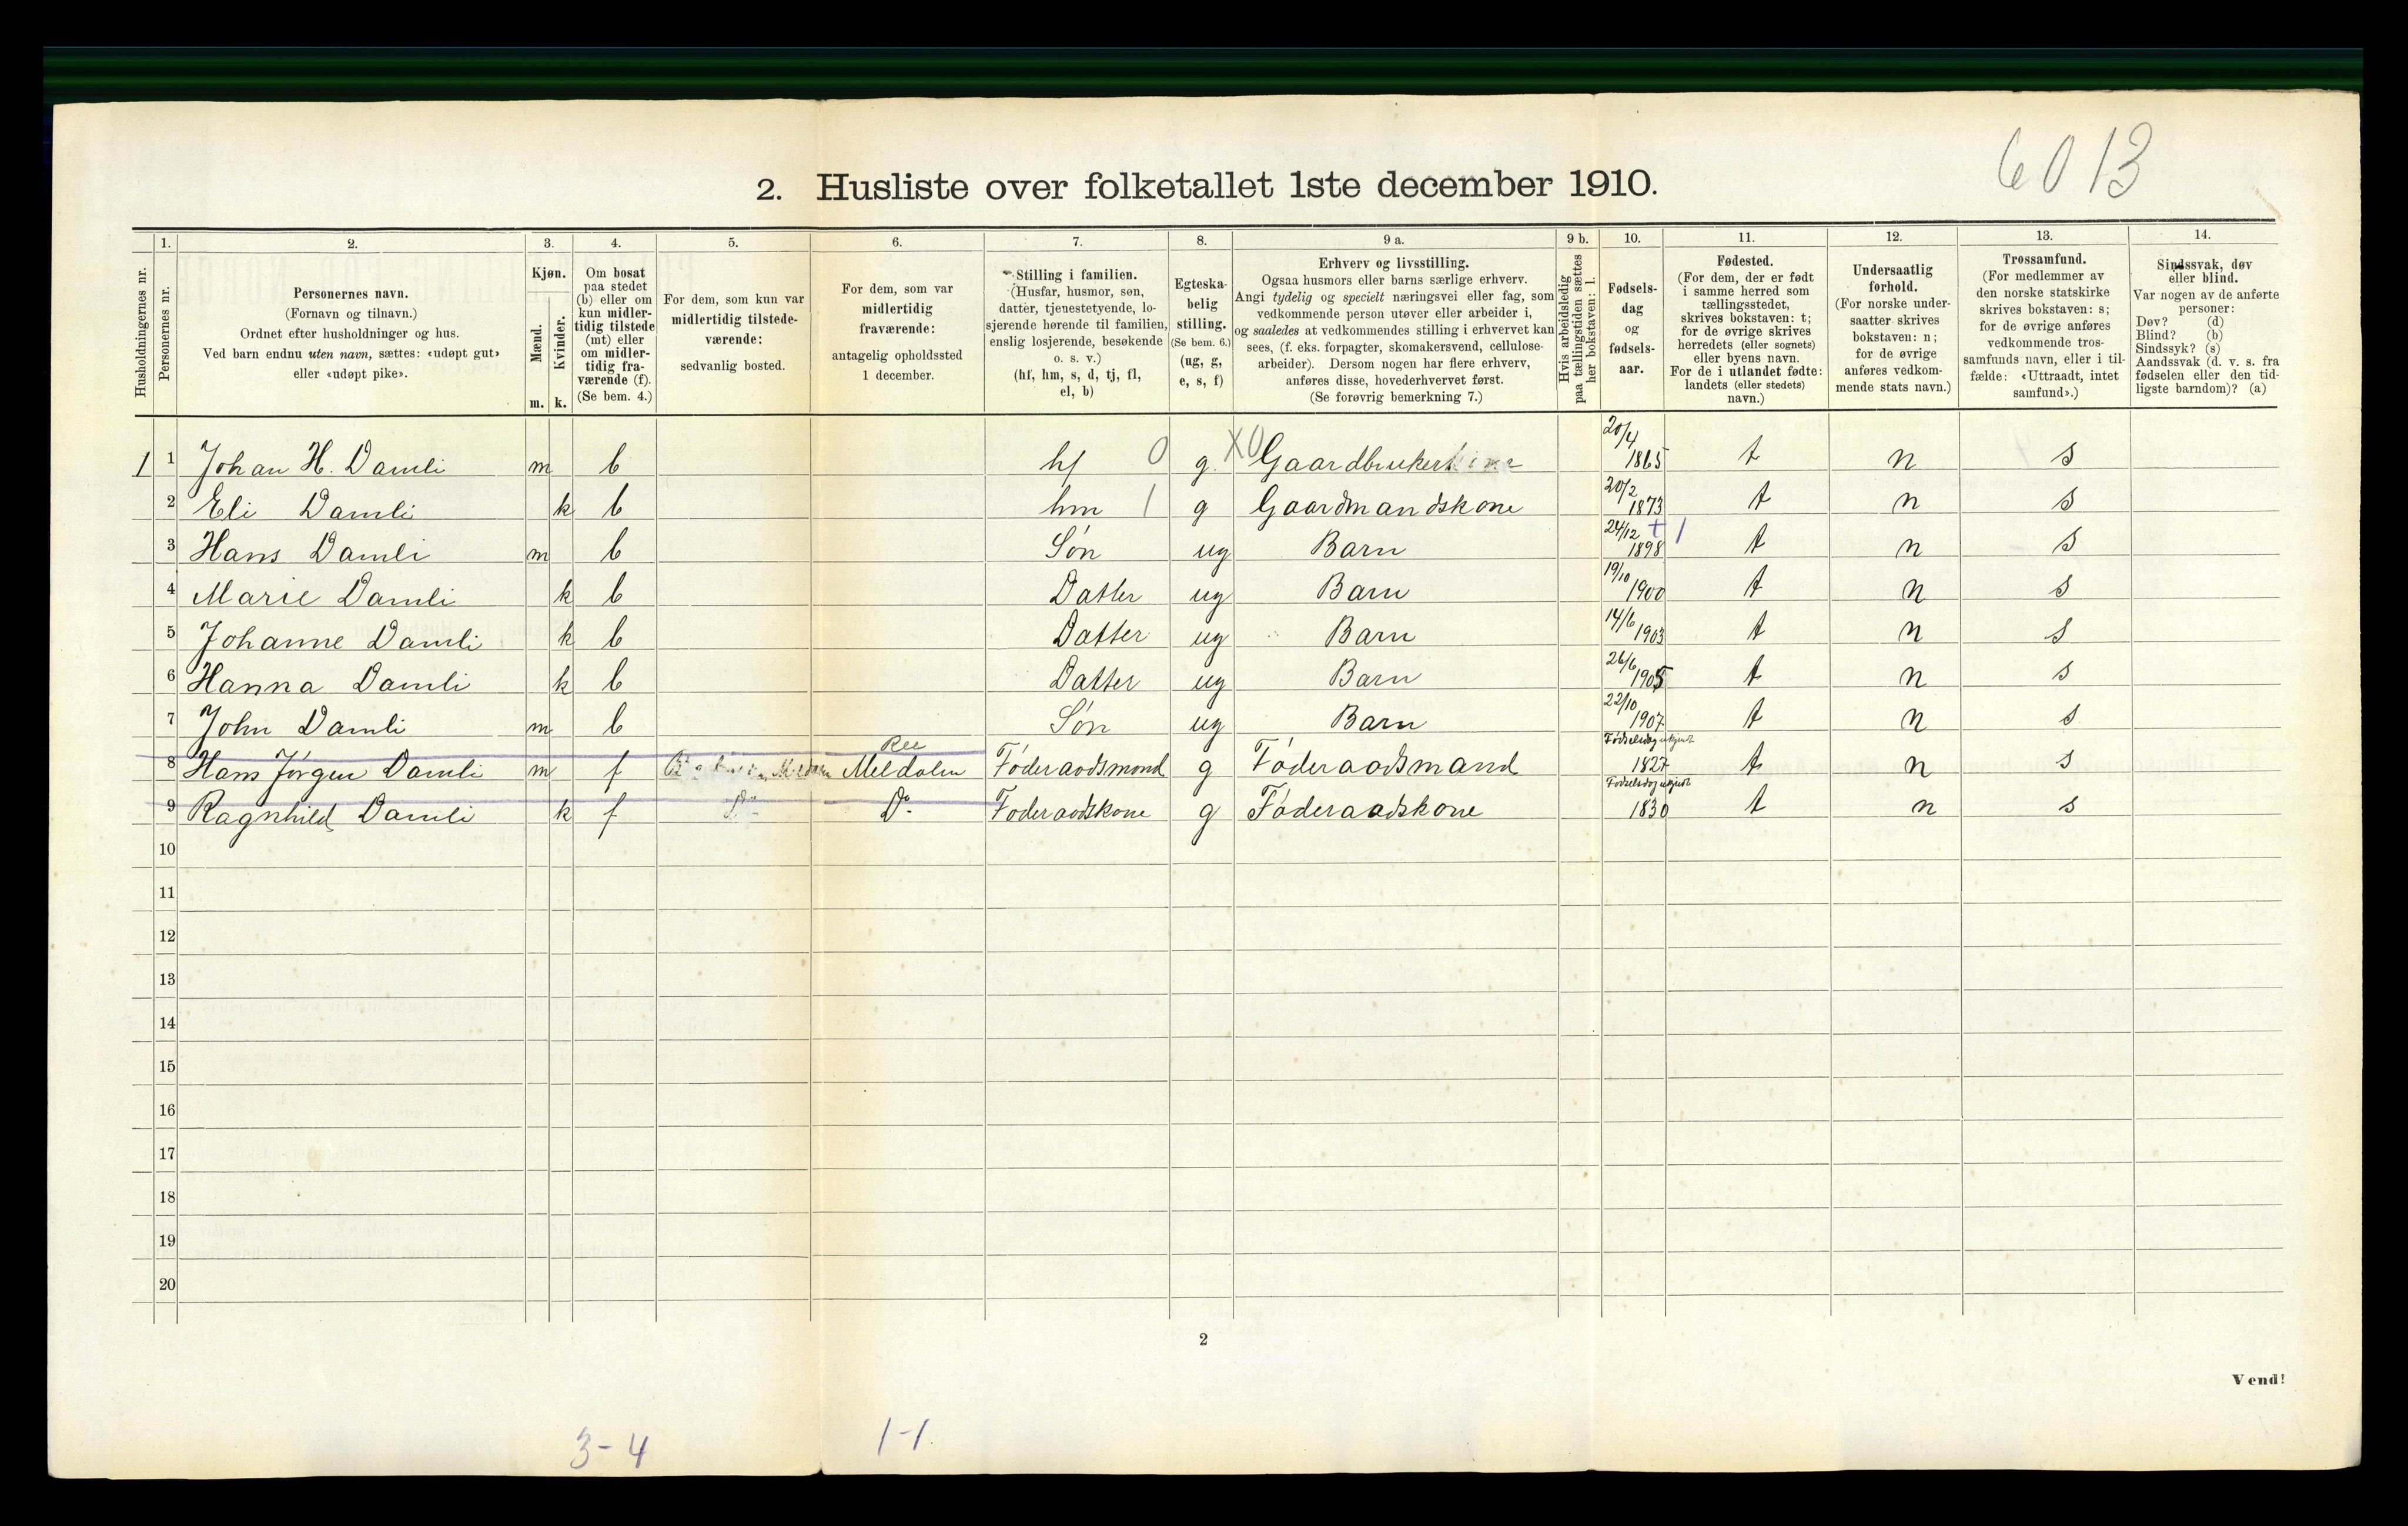 6013
2. Husliste over folketallet 1ste december 1910.
Husholdningernes nr.
1.
Personernes nr.
2.
Personernes navn.
(Fornavn og tilnavn.)
Ordnet efter husholdninger og hus.
Ved barn endnu uten navn, sættes: «udøpt gut»
eller «udøpt pike».
3.
Kjøn.
Mænd.
Kvinder.
m. k.
4.
Om bosat
paa stedet
(b) eller om
kun midler-
tidig tilstede
(mt) eller
om midler-
tidig fra-
værende (f).
(Se bem. 4.)
5.
For dem, som kun var
midlertidig tilstede-
værende:
sedvanlig bosted.
6.
For dem, som var
midlertidig
fraværende:
antagelig opholdssted
1 december.
7.
Stilling i familien.
(Husfar, husmor, søn,
datter, tjenestetyende, lo-
sjerende hørende til familien,
enslig losjerende, besøkende
o. s. v.)
(hf, hm, s, d, tj, fl,
el, b)
8.
Egteska-
belig
stilling.
(Se bem. 6.)
(ug, g,
e, s, f)
9 a.
Erhverv og livsstilling.
Ogsaa husmors eller barns særlige erhverv.
Angi tydelig og specielt næringsvei eller fag, som
vedkommende person utøver eller arbeider i,
og saaledes at vedkommendes stilling i erhvervet kan
sees, (f. eks. forpagter, skomakersvend, cellulose-
arbeider). Dersom nogen har flere erhverv,
anføres disse, hovederhvervet først.
(Se forøvrig bemerkning 7.)
9 b.
Hvis arbeidsledig
paa tællingstiden sættes
her bokstaven: l.
10.
Fødsels-
dag
og
fødsels-
aar.
11.
Fødested.
(For dem, der er født
i samme herred som
tællingsstedet,
skrives bokstaven: t;
for de øvrige skrives
herredets (eller sognets)
eller byens navn.
For de i utlandet fødte:
landets (eller stedets)
navn.)
12.
Undersaatlig
forhold.
(For norske under-
saatter skrives
bokstaven: n;
for de øvrige
anføres vedkom-
mende stats navn.)
13.
Trossamfund.
(For medlemmer av
den norske statskirke
skrives bokstaven: s;
for de øvrige anføres
vedkommende tros-
samfunds navn, eller i til-
fælde: «Uttraadt, intet
samfund».)
14.
Sindssvak, døv
eller blind.
Var nogen av de anførte
personer:
Døv? (d)
Blind? (b)
Sindssyk? (s)
Aandssvak (d. v. s. fra
fødselen eller den tid-
ligste barndom)? (a)
1 1 Johan H. Damli m b hf 0 g X0 Gaardbruker 20/4 1865 t n s
2 Eli Damli k b hm 1 g Gaardmandskone 20/2 1873 t n s
3 Hans Damli m b Søn ug Barn 24/12 1898 + 1 t n s
4 Marie Damli k b Datter ug Barn 19/10 1900 t n s
5 Johanne Damli k b Datter ug Barn 14/6 1903 t n s
6 Hanna Damli k b Datter ug Barn 26/6 1905 t n s
7 John Damli m b Søn ug Barn 22/10 1907 t n s
8 Hans Jörgen Damli m f Meldalen Føderaadsmand g Føderaadsmand Fødselsdag ukjent 1827 t n s
9 Ragnhild Damli k f Do Do Føderaadskone g Føderaadskone Fødselsdag ukjent 1830 t n s
10
11
12
13
14
15
16
17
18
19
20
2
Vend!
3-4 1-1